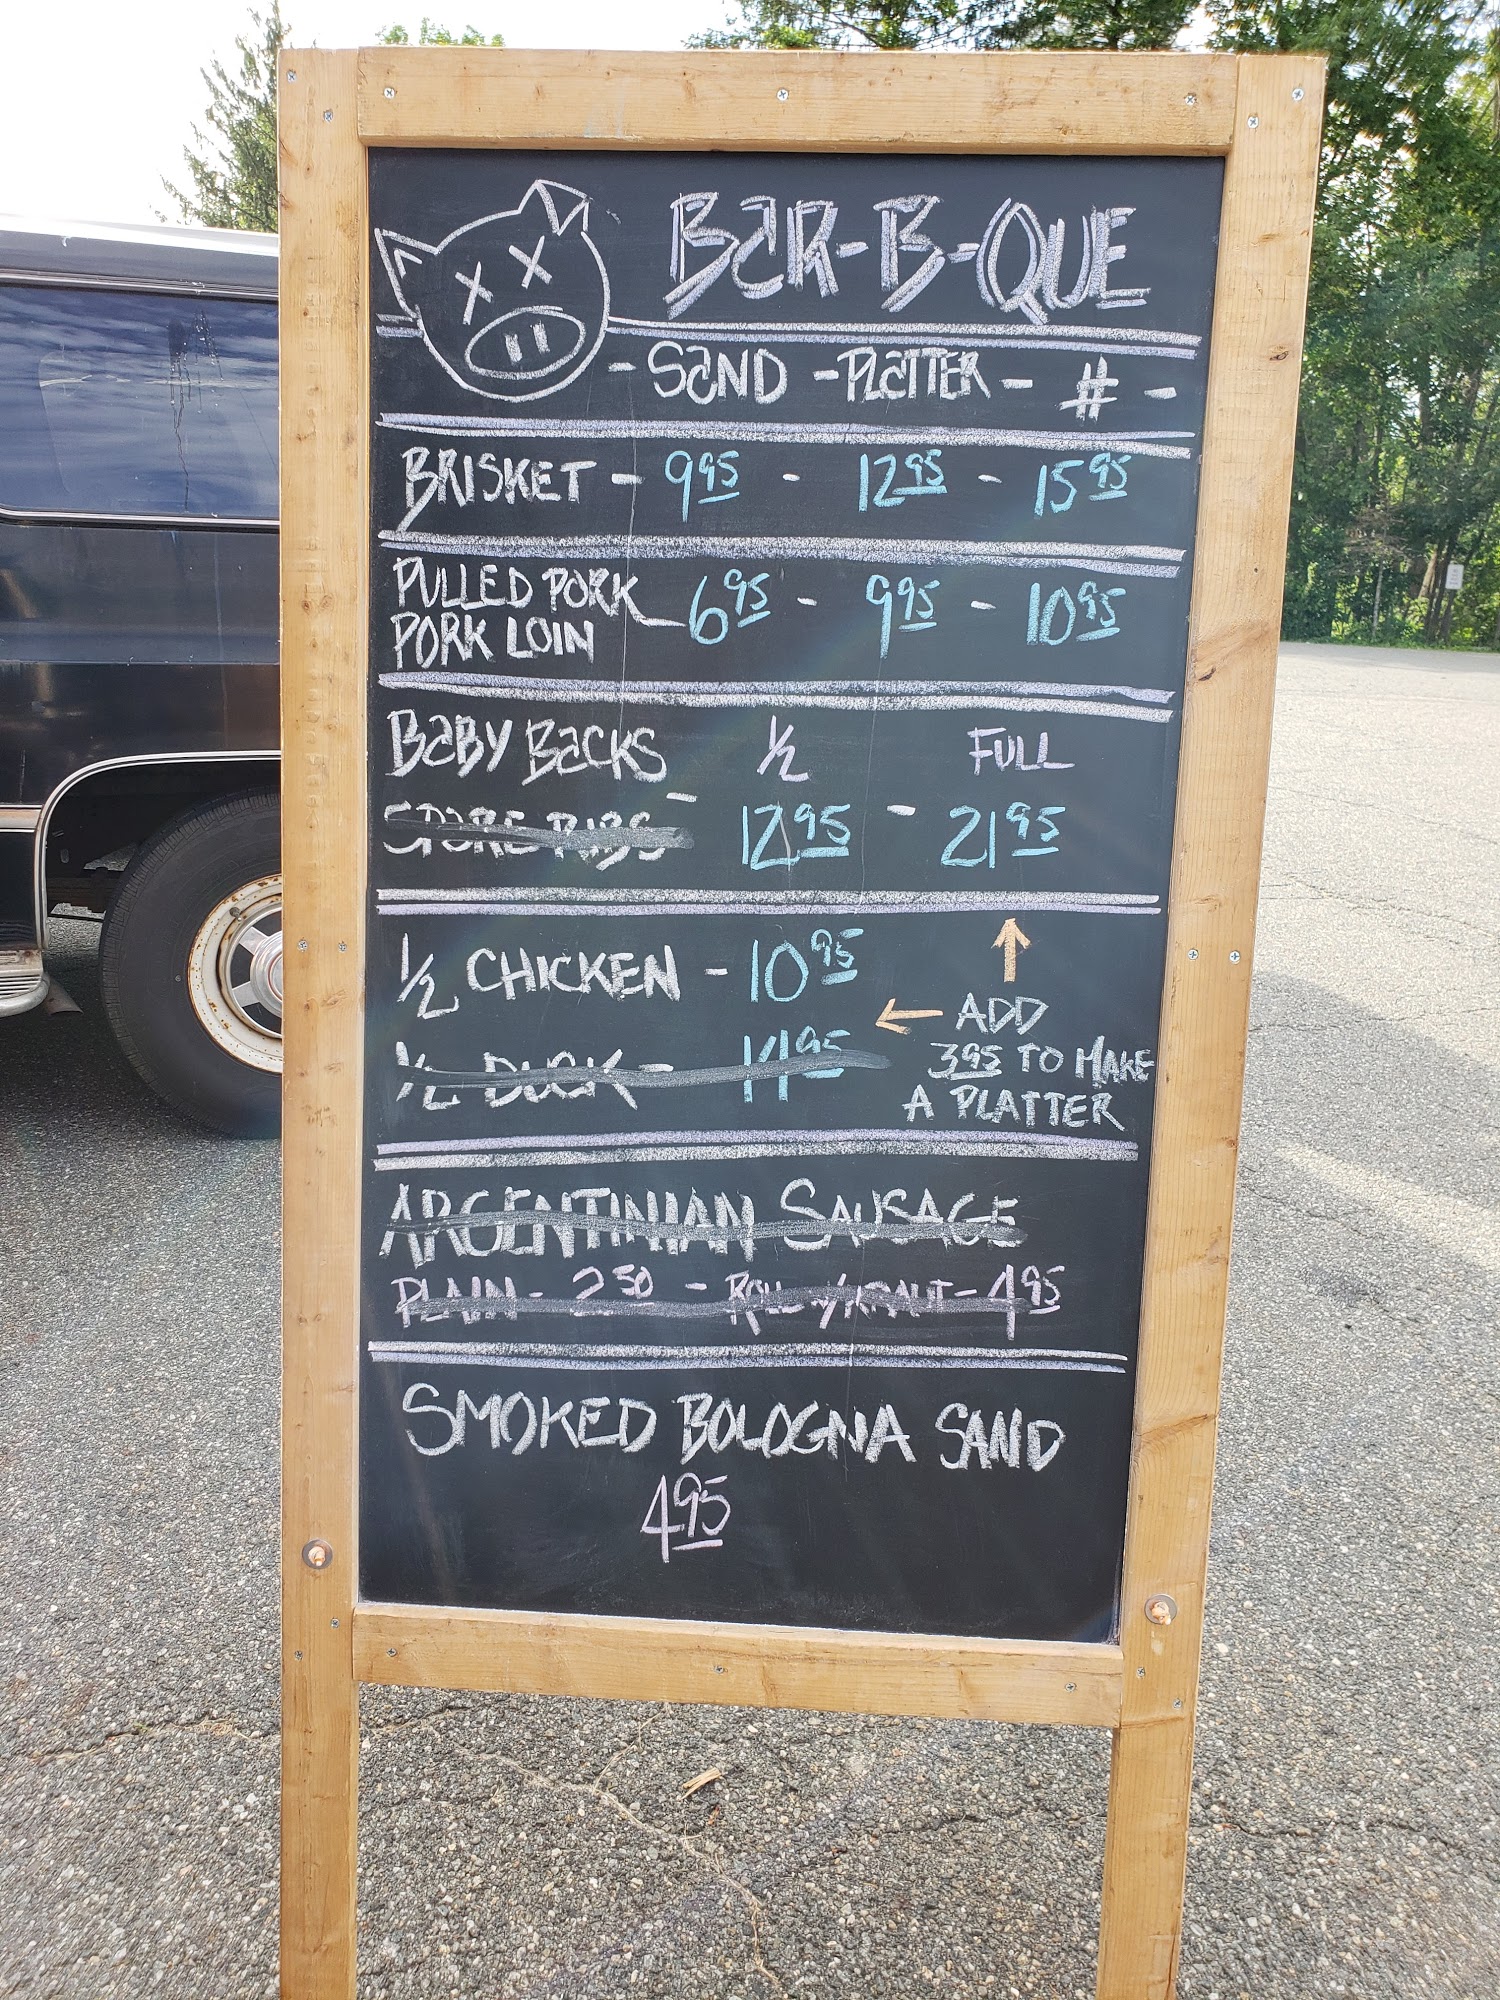 BAR-B-QUE
- SAND - PLATTER - # -
BRISKET - 9.95 - 12.95 - 15.95
PULLED PORK
PORK LOIN - 6.95 - 9.95 - 10.95
BABY BACKS 1/2 FULL
SPARE RIBS - 12.95 - 21.95
1/2 CHICKEN - 10.95
1/2 DUCK - 14.95
ADD
3.95 TO MAKE
A PLATTER
ARGENTINIAN SAUSAGE
PLAIN - 2.50 - ROLL W/KRAUT - 4.95
SMOKED BOLOGNA SAND
4.95